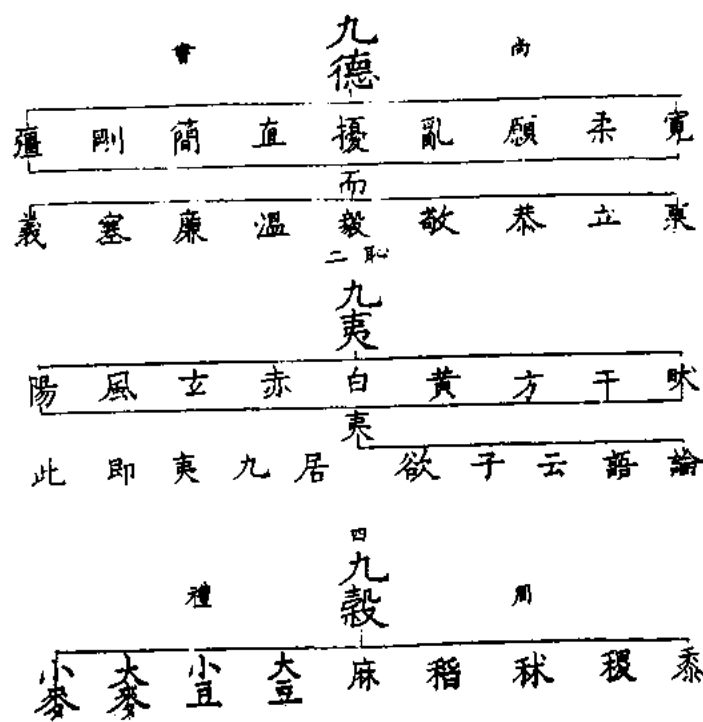 尚書
九德
寬柔願亂擾直簡剛彊
而
栗立恭敬毅溫廉塞義
恥二
九夷
畎干方黃白赤玄風陽
夷
論語云子欲居九夷即此
四
周禮
九穀
黍稷秫稻麻大豆小豆大麥小麥